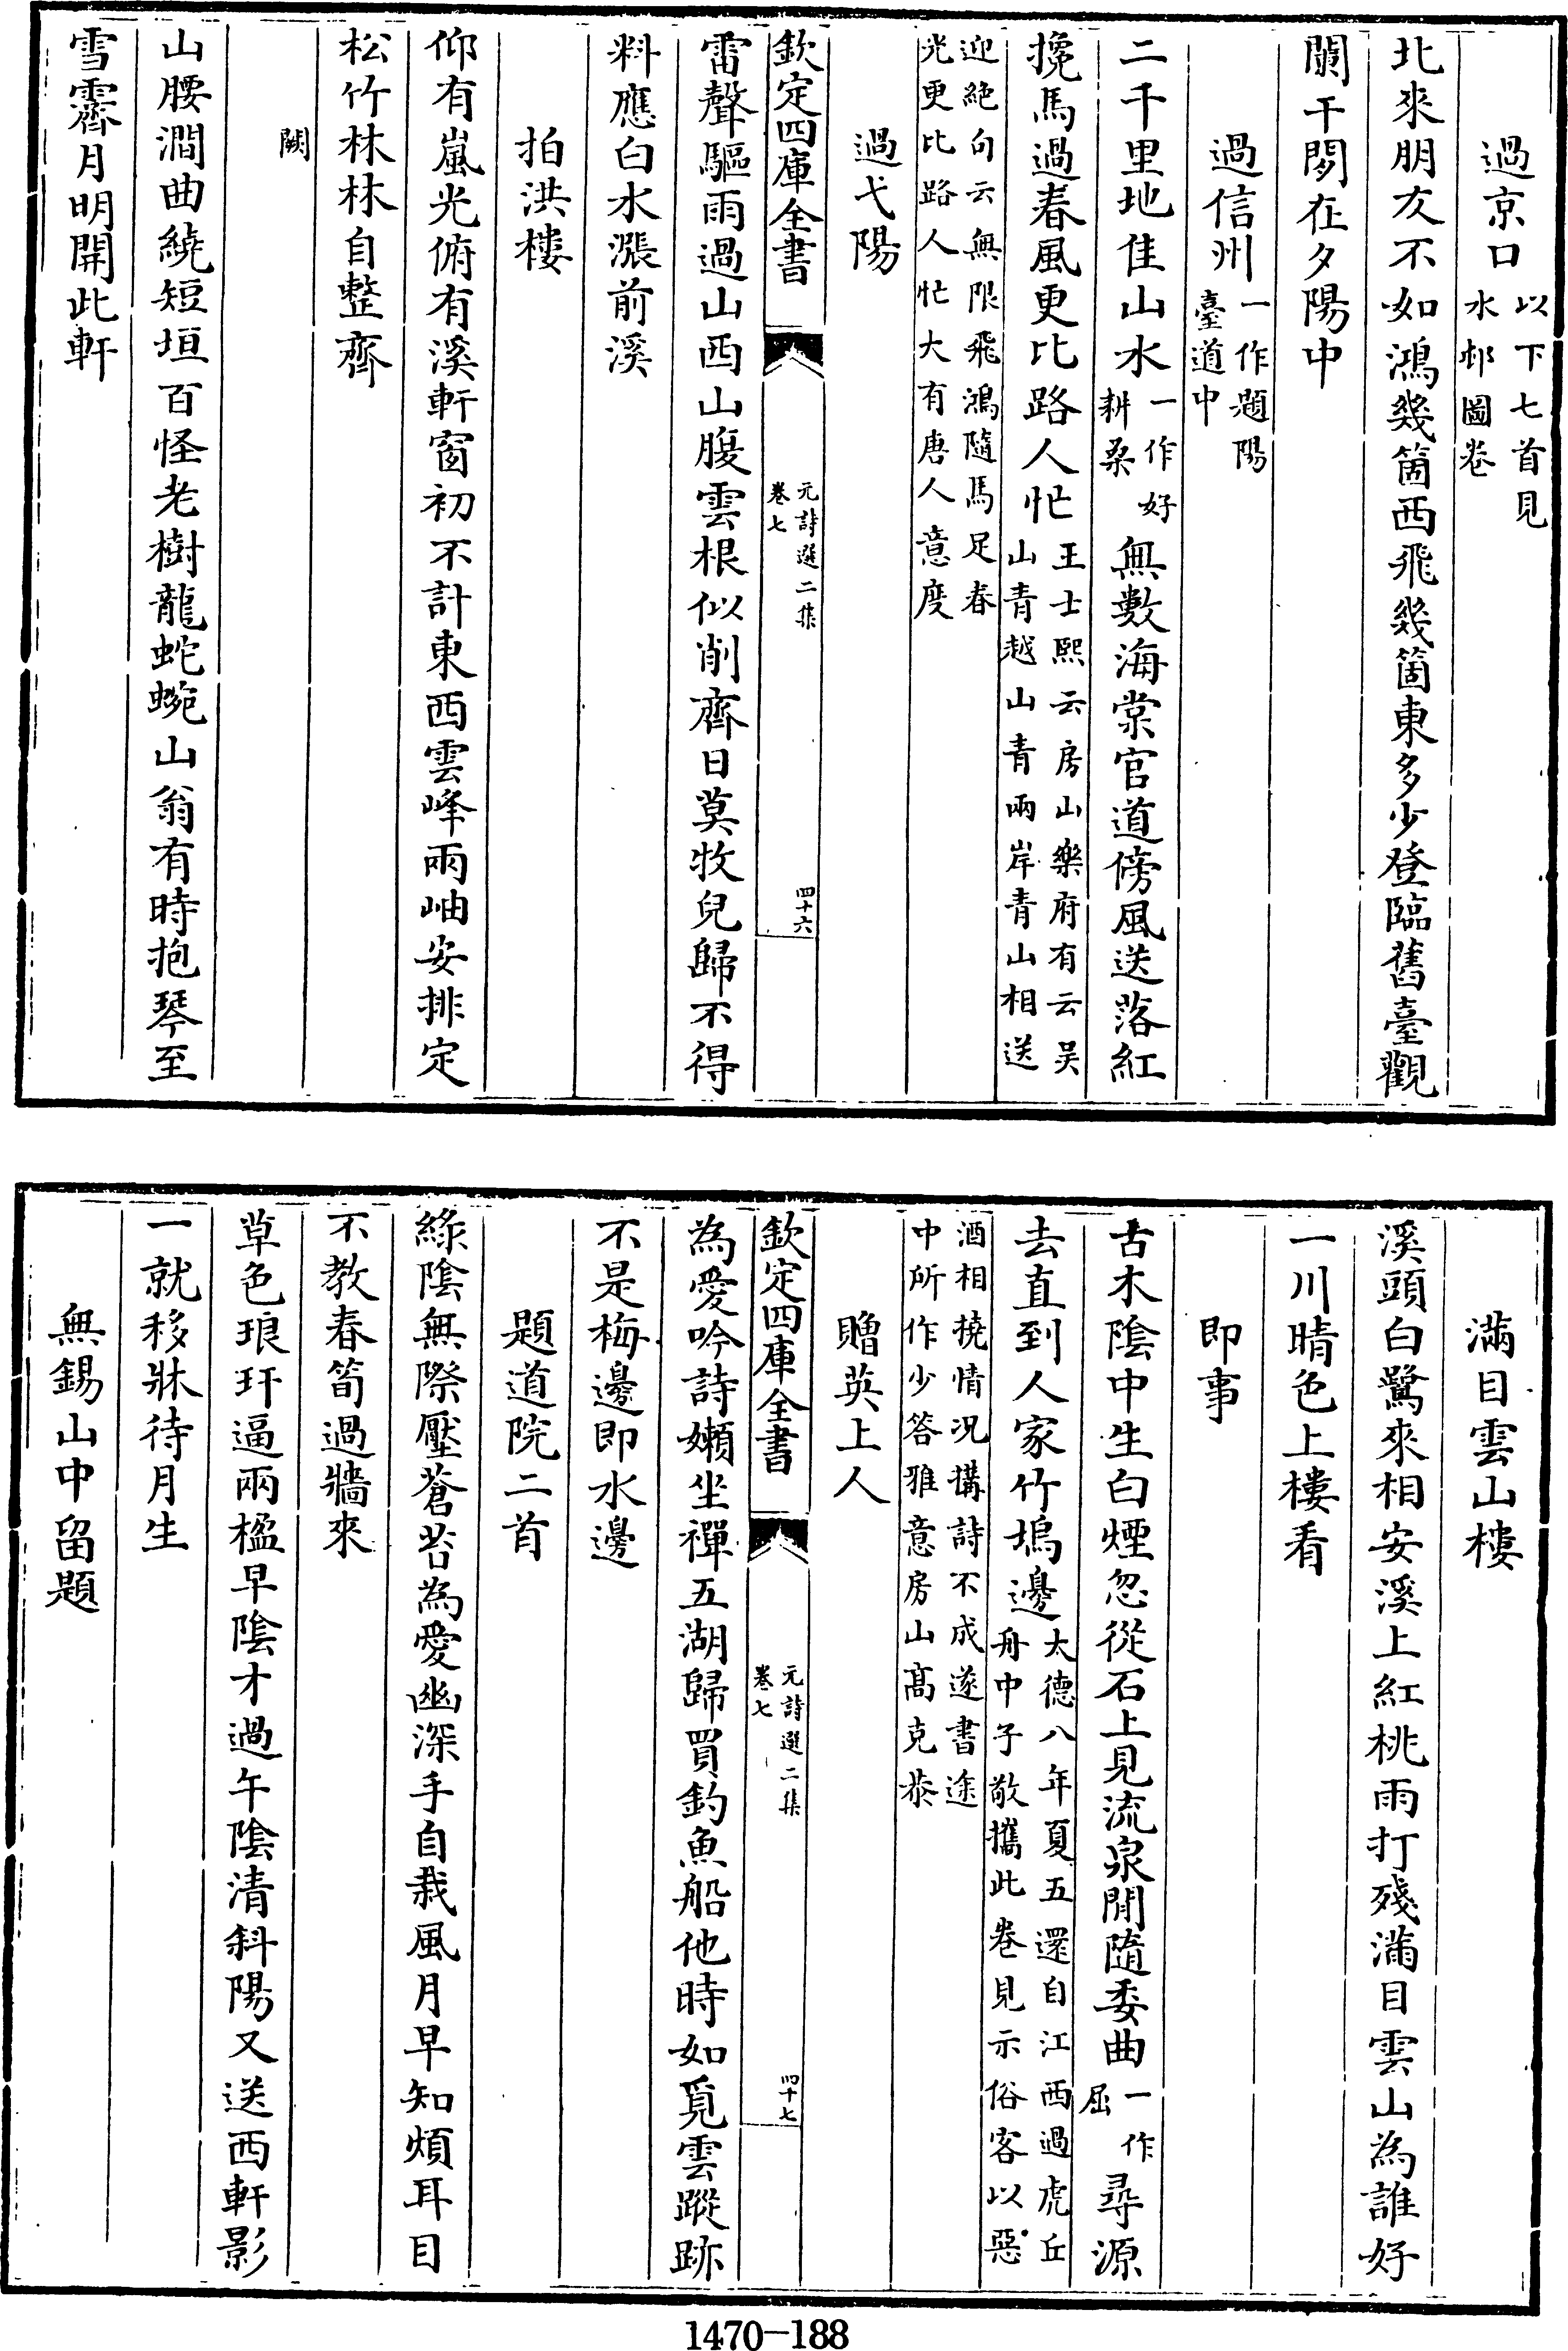 過京口以下七首見水邨圖卷
北來朋友不如鴻幾箇西飛幾箇東多少登臨舊臺觀
闌干閒在夕陽中
過信州一作題陽臺道中
二千里地佳山水一作好耕桑無數海棠官道傍風送落紅
攙馬過春風更比路人忙王士熙云房山樂府有云吴山青越山青兩岸青山相送
迎絶句云無限飛鴻隨馬足春光更比路人忙大有唐人意度
過弋陽
欽定四庫全書
元詩選二集
卷七
四十六
雷聲驅雨過山西山腹雲根似削齊日莫牧兒歸不得
料應白水漲前溪
拍洪樓
仰有嵐光俯有溪軒窗初不計東西雲峰兩岫安排定
松竹林林自整齊
闕
山腰澗曲繞短垣百怪老樹龍蛇蜿山翁有時抱琴至
雪霽月明開此軒
滿目雲山樓
溪頭白鷺來相安溪上紅桃雨打殘滿目雲山為誰好
一川晴色上樓看
即事
古木陰中生白煙忽從石上見流泉閒隨委曲一作屈尋源
去直到人家竹塢邊大德八年夏五還自江西過虎丘舟中子敬攜此卷見示俗客以惡
酒相撓情况搆詩不成遂書途中所作少答雅意房山髙克恭
贈英上人
欽定四庫全書
元詩選二集
卷七
四十七
為愛吟詩嬾坐禪五湖歸買釣魚船他時如覓雲蹤跡
不是梅邊即水邊
題道院二首
綠陰無際壓蒼苔為愛幽深手自栽風月早知煩耳目
不教春筍過牆來
草色琅玕逼兩楹早陰才過午陰清斜陽又送西軒影
一就移牀待月生
無錫山中留題
1470—188